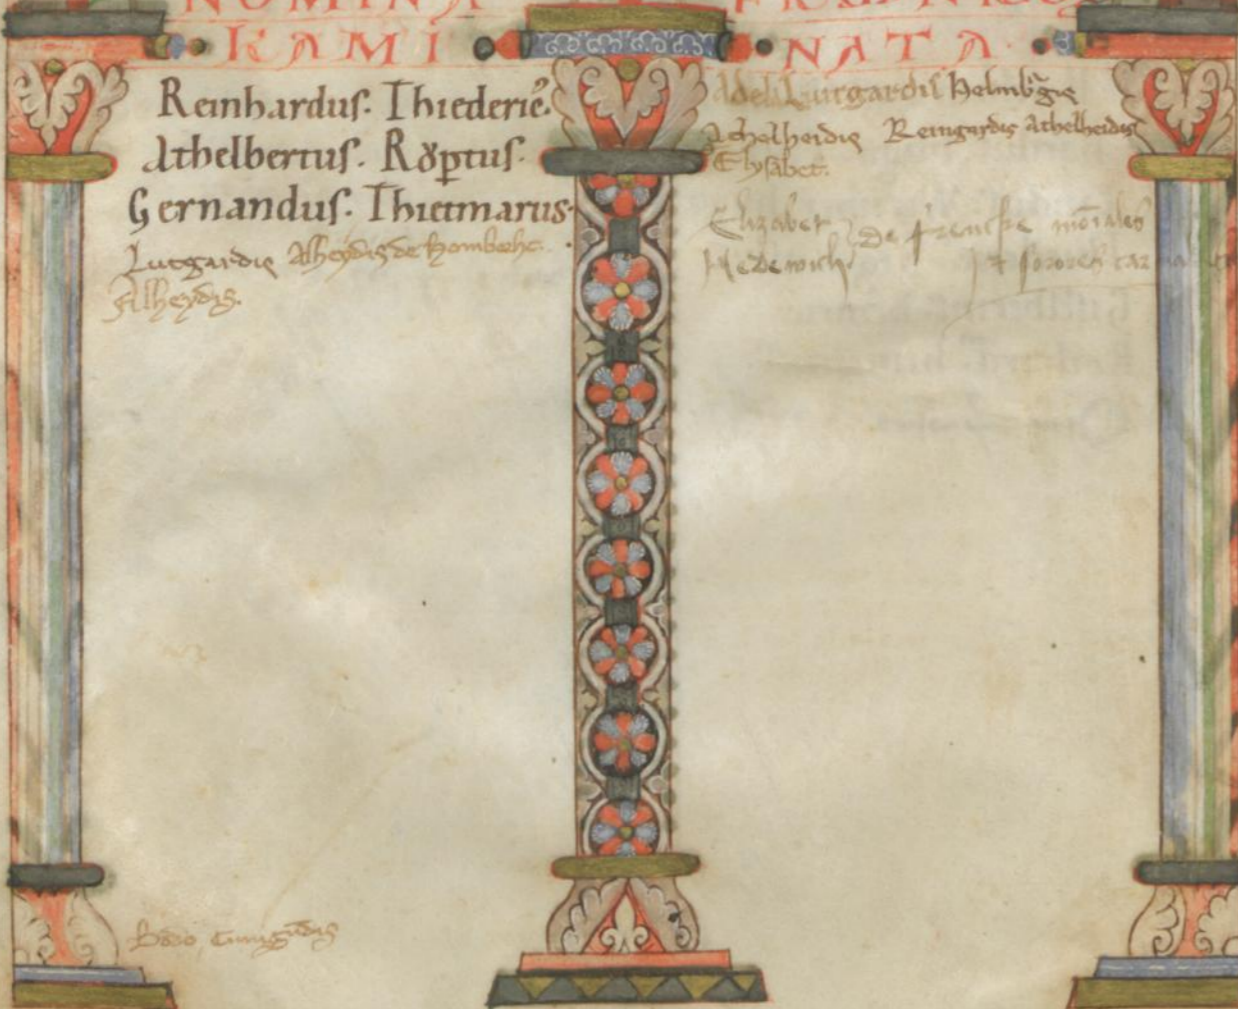 NOMINA
KAMI NATA
Reinhardus. Thiederic̄.
Athelbertus. Roͮptus.
Gernandus. Thietmarus.
Lutgardis Alheydis de Hombohc.
Alheydis.
Bodo, Cunigūdis
Adel. Lutgardis Helmb̄gis
Athelheidis Reingardis Athelheidis
Elysabet.
Elizabet de frencke mōiales
Hedewich. sorores